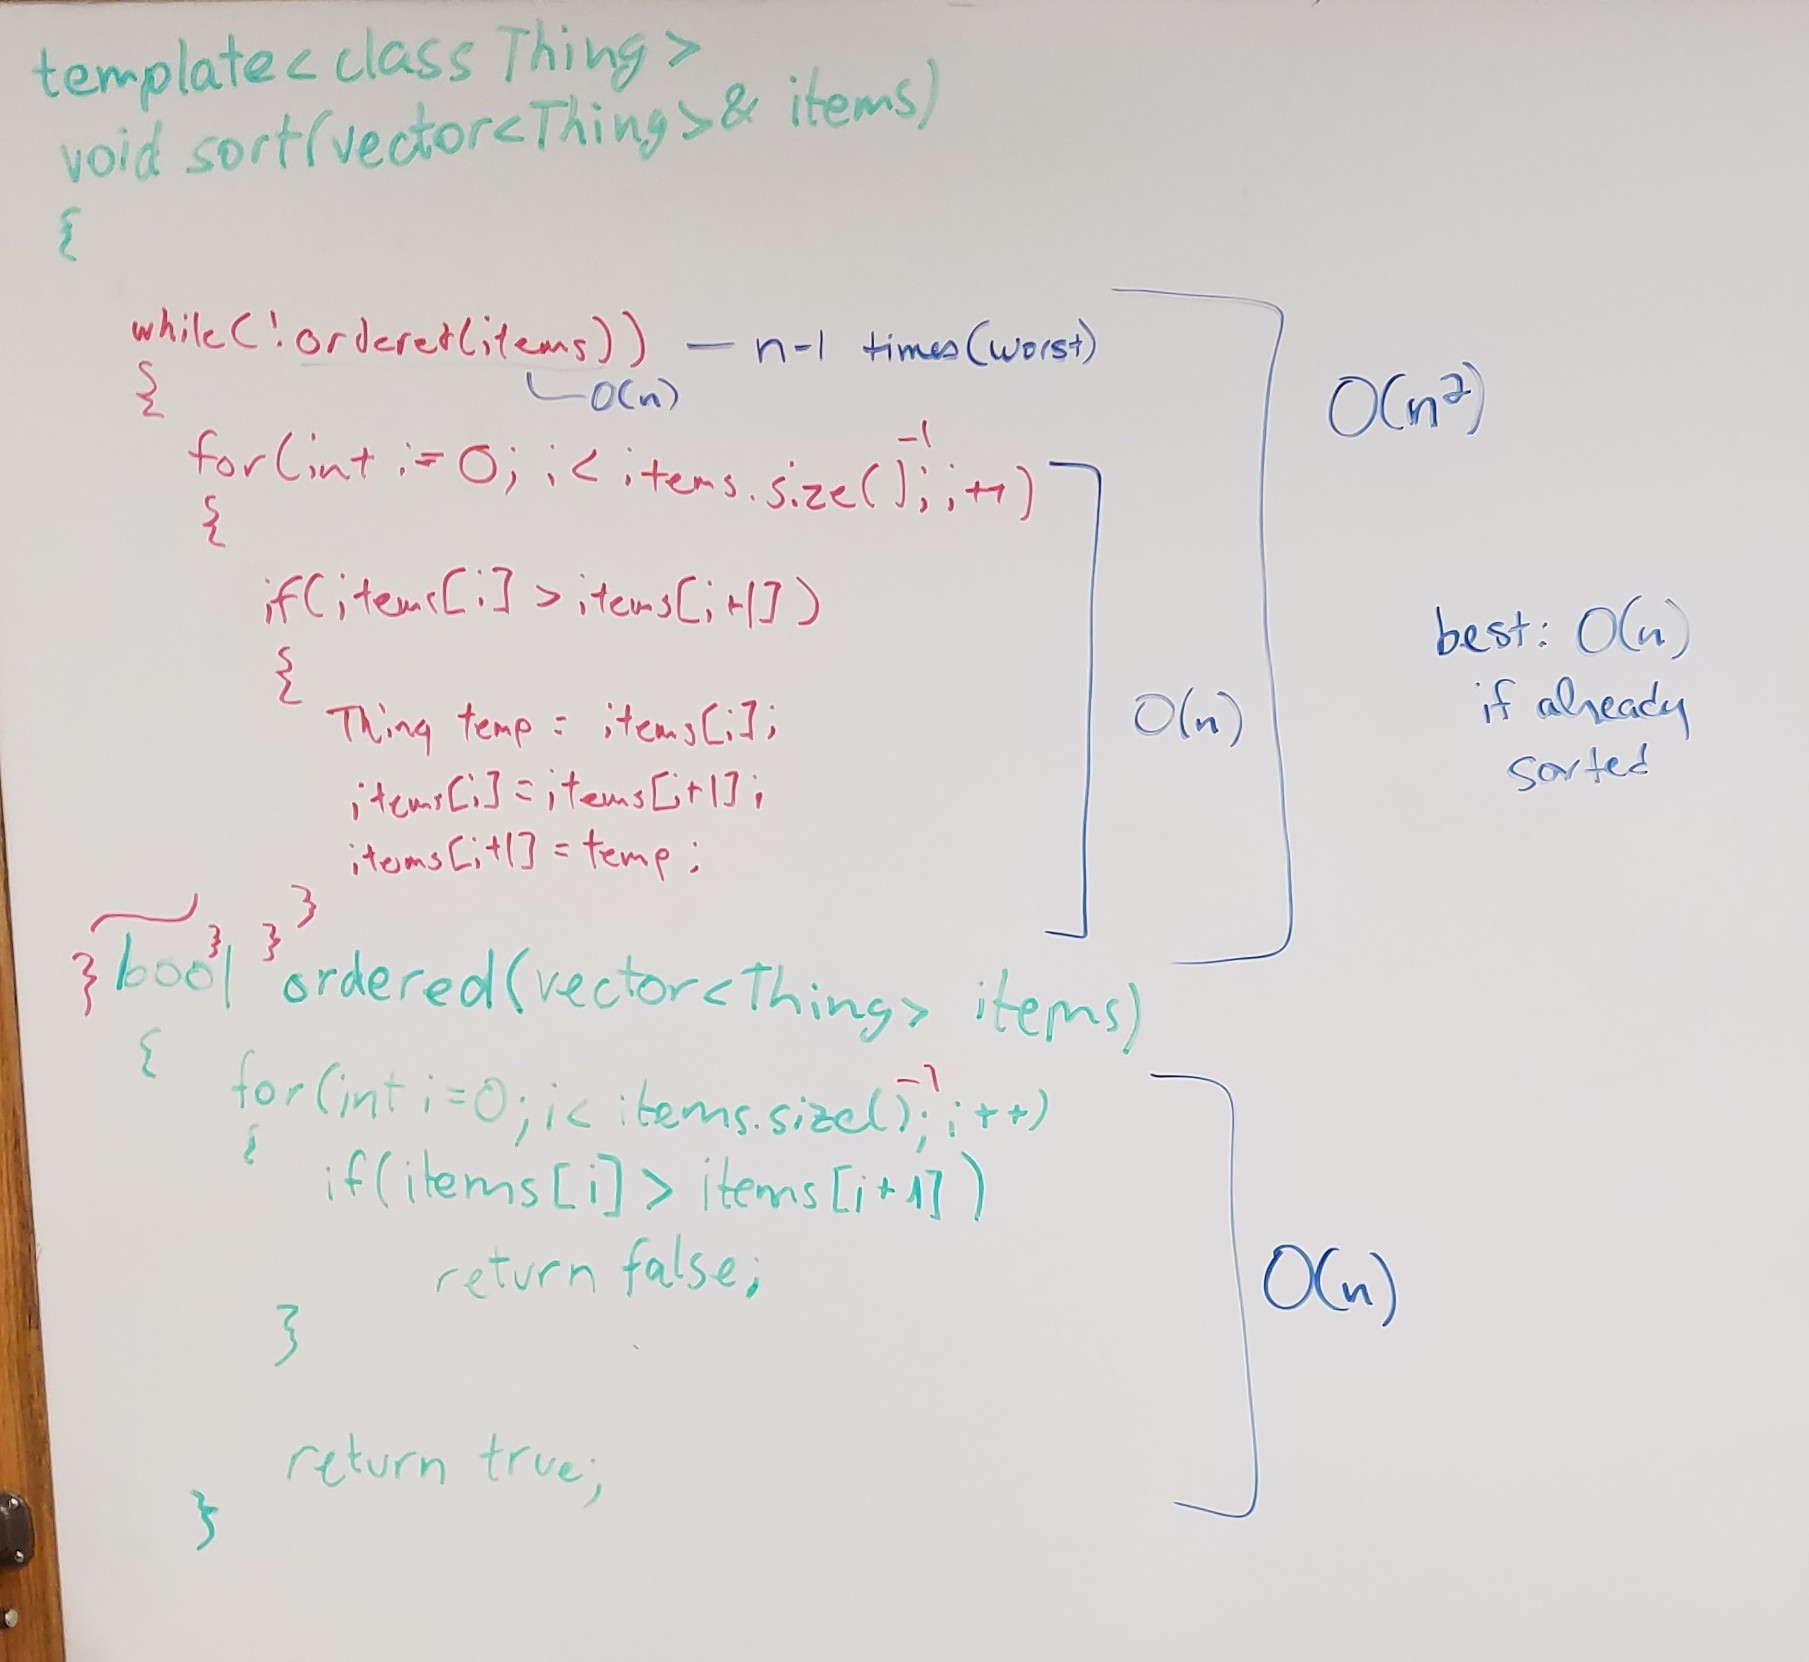 template<class Thing>
void sort(vector<Thing>& items)
{
while(!ordered(items)) — n-1 times (worst)
{
O(n)
O(n²)
for(int i=0; i<items.size()-1; i++)
{
if(items[i] > items[i+1])
{
Thing temp = items[i];
items[i] = items[i+1];
items[i+1] = temp;
}
}
}
}
O(n)
best: O(n)
if already
sorted
bool ordered(vector<Thing> items)
{
for(int i=0; i<items.size()-1; i++)
{
if(items[i] > items[i+1])
return false;
}
return true;
}
O(n)